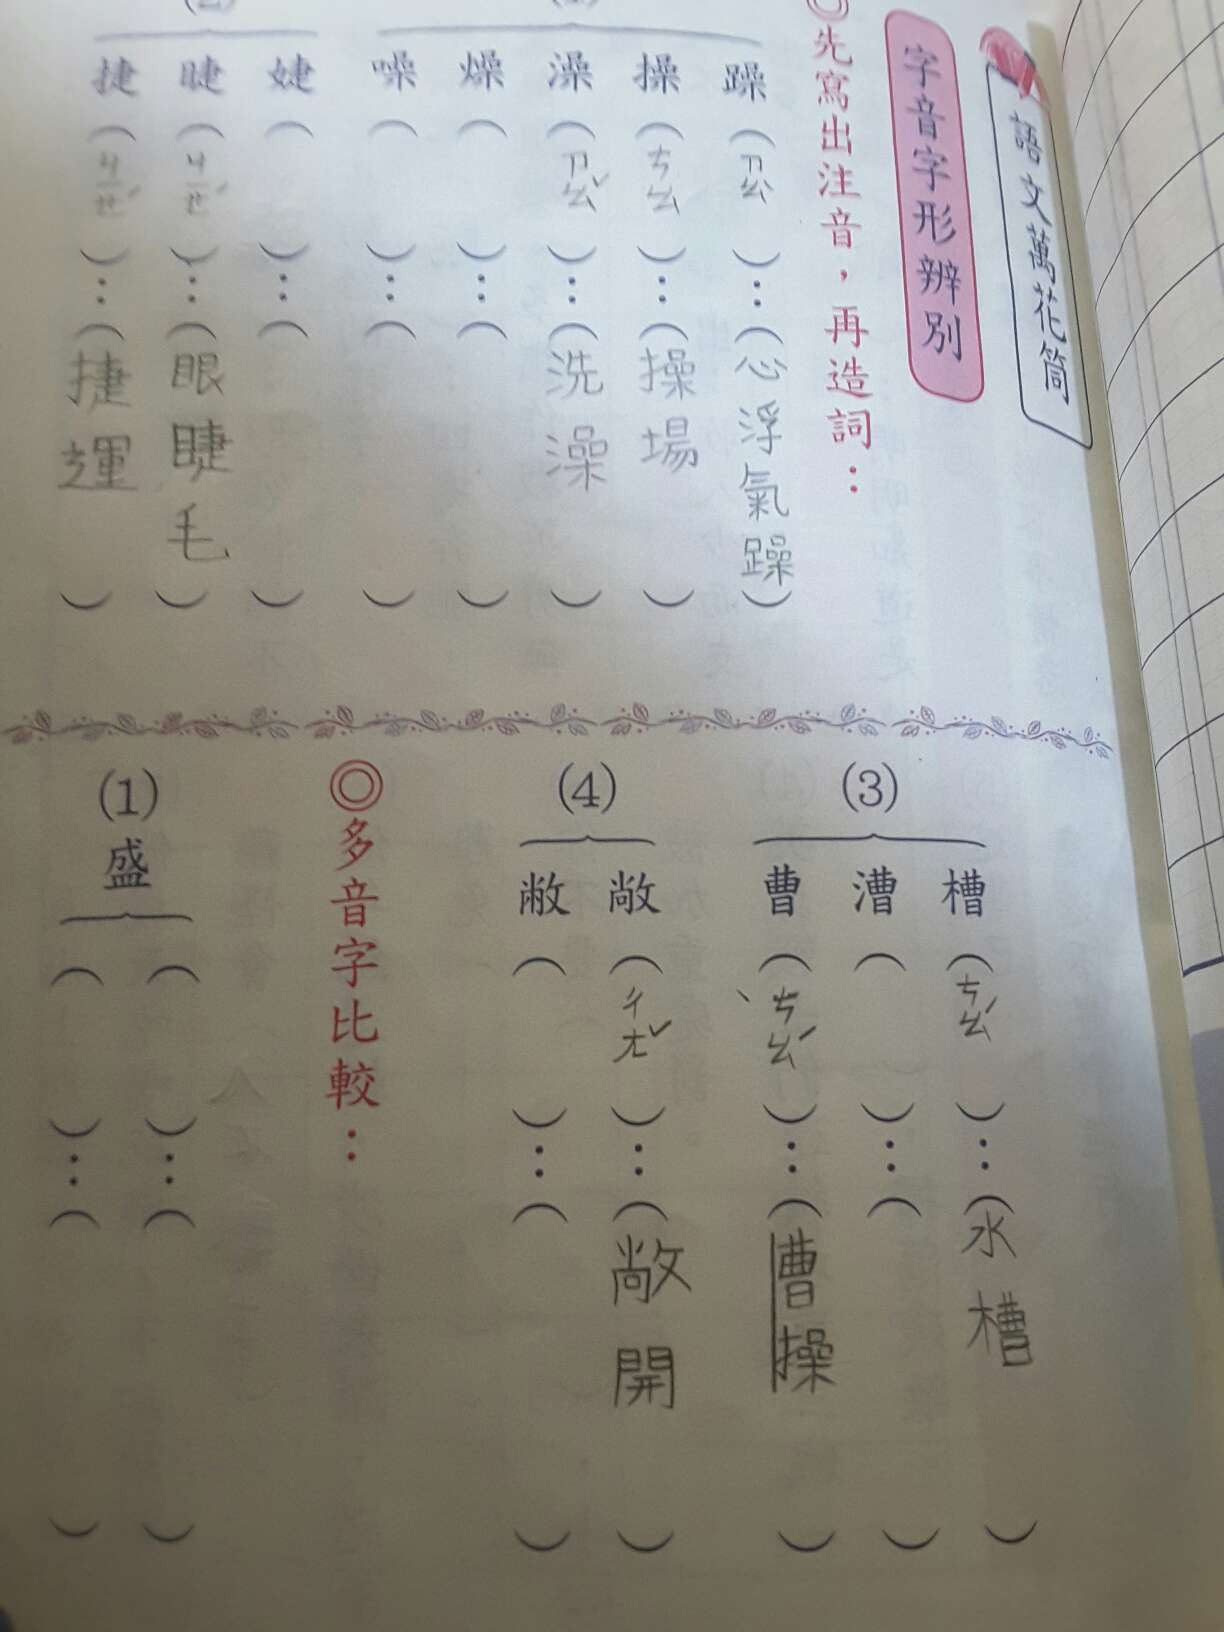 語文萬花筒
字音字形辨別
◎先寫出注音，再造詞：
躁（ㄗㄠ）：（心浮氣躁）
操（ㄘㄠ）：（操場）
澡（ㄗㄠˇ）：（洗澡）
燥（）：（）
噪（）：（）
(2)
婕（）：（）
睫（ㄐㄧㄝˊ）：（眼睫毛）
捷（ㄐㄧㄝˊ）：（捷運）
(3)
槽（ㄘㄠˊ）：（水槽）
漕（）：（）
曹（ㄘㄠˊ）：（曹操）
(4)
敞（ㄔㄤˇ）：（敞開）
敝（）：（）
◎多音字比較：
(1)盛
（）：（）
（）：（）